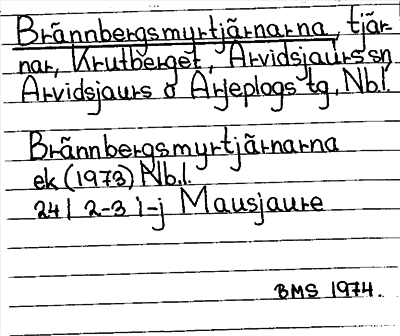 Brännbergsmyrtjärnarna, tjär-
nar, Krutberget, Arvidsjaurs sn
Arvidsjaurs o Arjeplogs tg, Nb.l.
Brännbergsmyrtjärnarna
ek (1973) Nb.l.
24 I 2-3 i-j Mausjaure
BMS 1974.